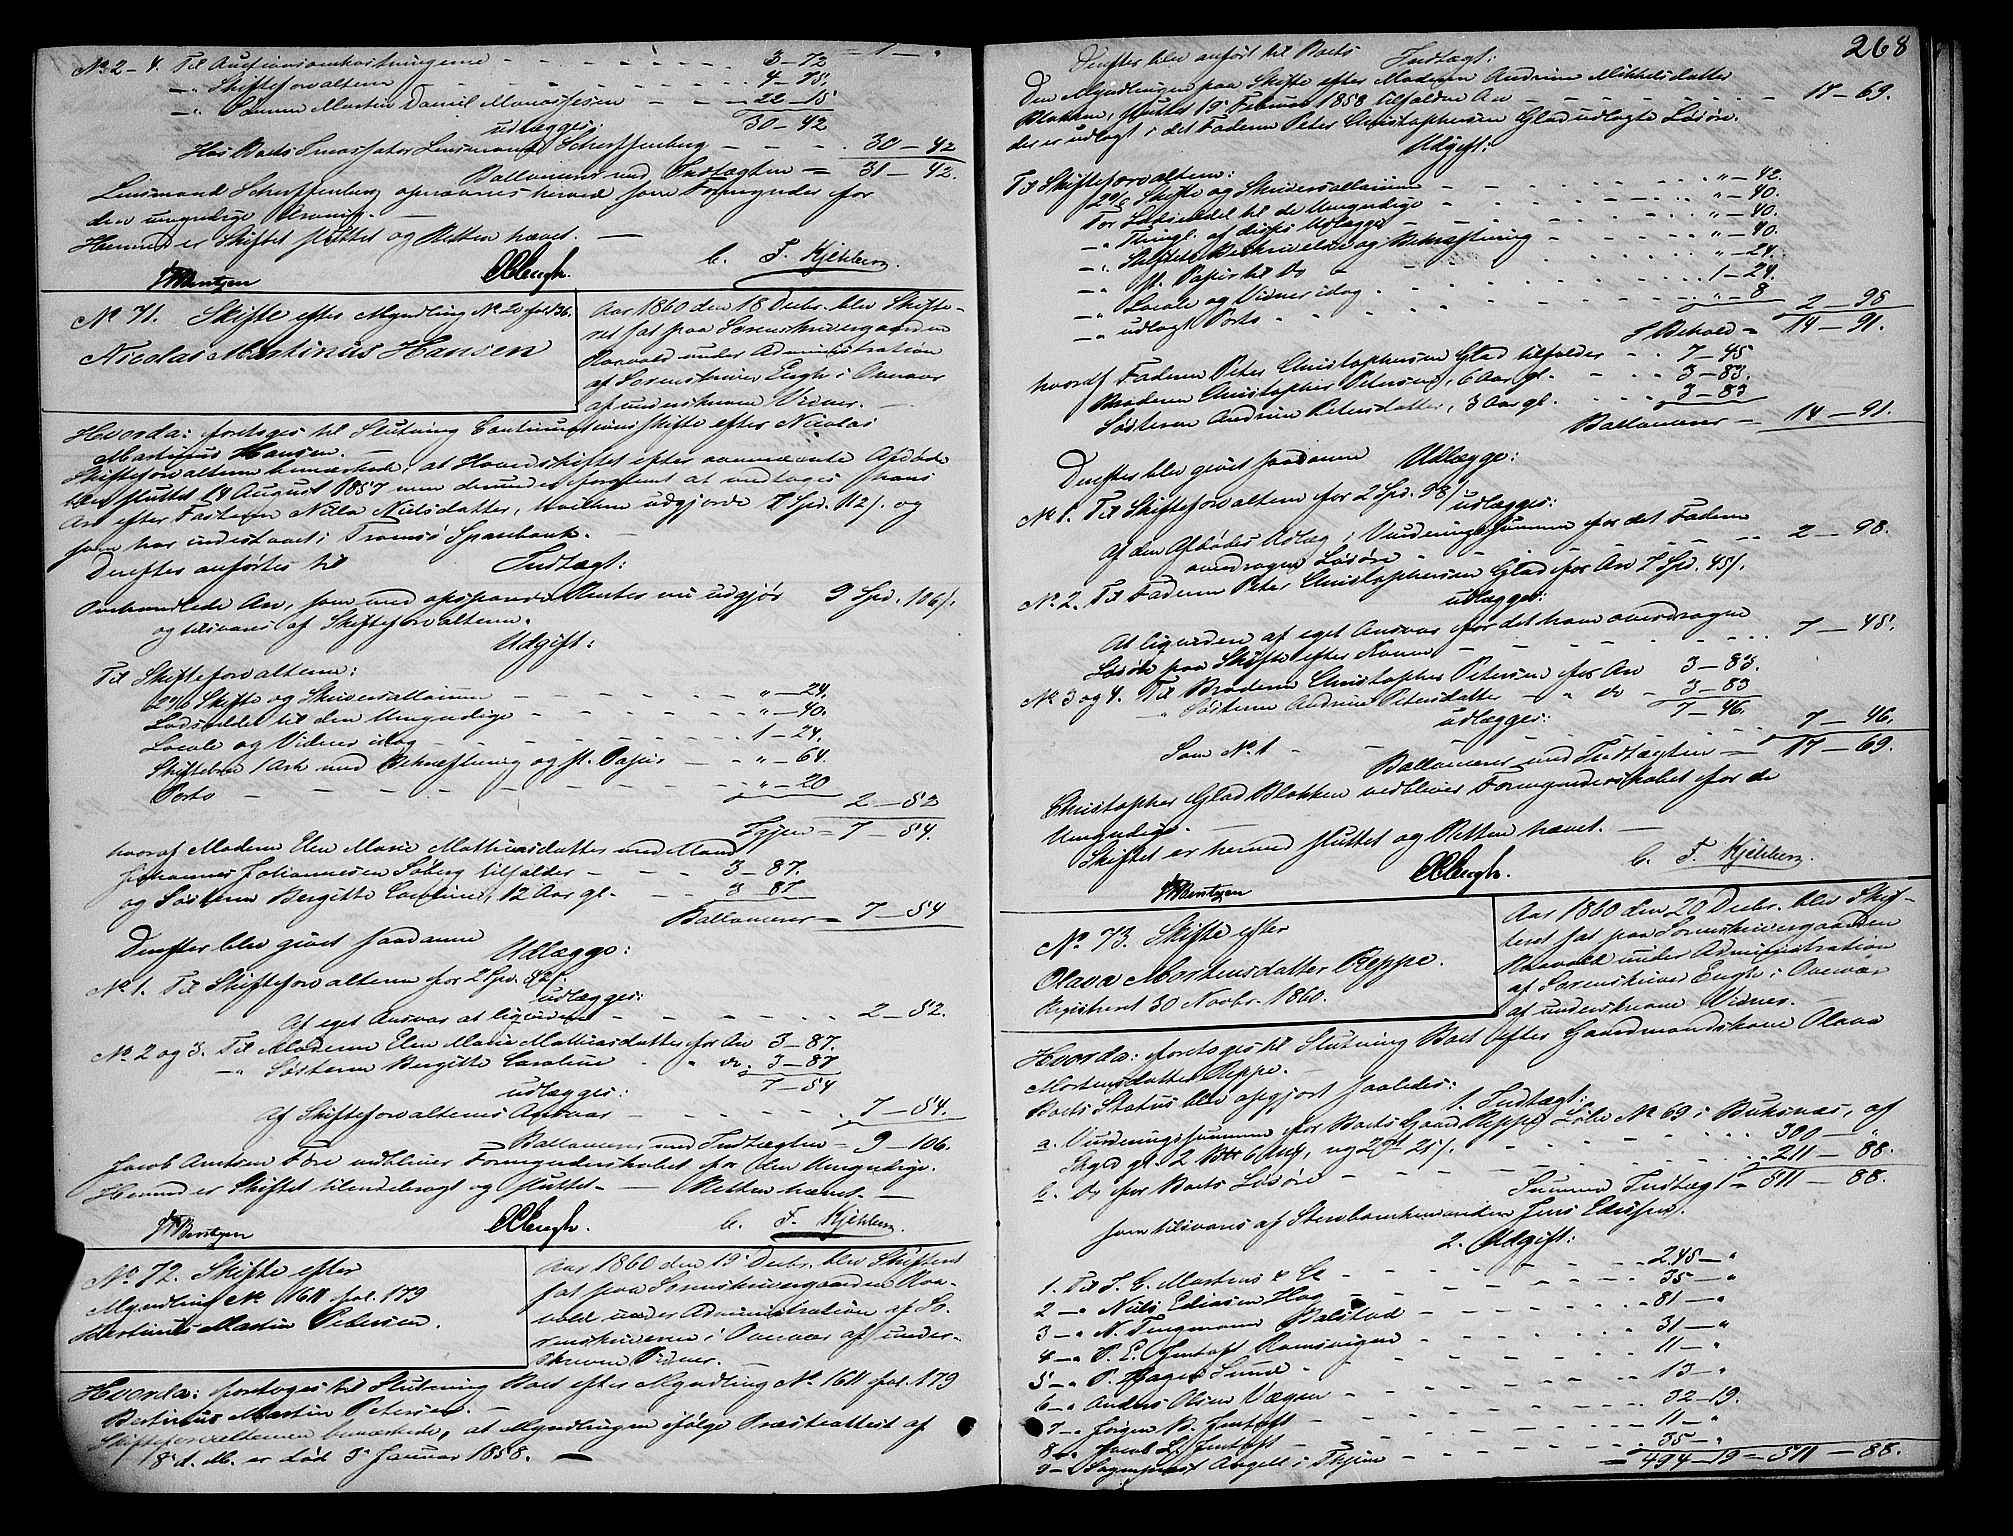 = 1 — "
No 2-4. Til Auctionsomkostningerne - - - 3-72
-"- Skifteforvalteren - - - 4-75
-"- Sønnen Martin Daniel Manassesen - - - 22-15
30-42
udlægges:
Hos Boets Incassator Lensmand Scherffenberg - - - 30-42
Ballancerer med Indtægten = 31-42.
Lensmand Scherffenberg opnævnes herved som Formynder for
den umyndige Arving. —
Hermed er Skiftet sluttet og Retten hævet. —
Bentzen Engh. C. F. Kjelberg.
No 71. Skifte efter Myndling No 20 fol 36.
Nicolai Martinus Hansen
Aar 1860 den 18 Decbr. blev Skifte-
ret sat paa Sorenskrivergaarden
Rosvold under Administration
af Sorenskriver Engh i Overvær
af underskrevne Vidner. —
Hvorda: foretoges til Slutning Continuationsskifte efter Nicolai
Martinus Hansen. —
Skifteforvalteren bemærkede, at Hovedskiftet efter ovennævnte Afdøde
blev sluttet 14 August 1857 men derunder forglemt at medtages hans
Arv efter Fasteren Nilla Nielsdatter, hvilken udgjorde 7 Spd. 112 s. og
som har indestaaet i Tromsø Sparebank. —
Derefter anførtes til Indtægt:
Omhandlede Arv, som med opsparede Renter nu udgjør 9 Spd. 106 s.
og tilsvares af Skifteforvalteren.
Udgift:
Til Skifteforvalteren:
2 9/6 Skifte og Skriversallarium - - - "-24.
Lodseddel til den Umyndige - - - "-40.
Locale og Vidner idag - - - 1-24.
Skiftebrev 1 Ark med Bekræftning og st. Papir - - "-64.
Porto - - - "-20
2-52
Igjen = 7-54.
hvoraf Moderen Elen Marie Mathiasdatter med Mand
Johannes Johannesen Soberg tilfalder - - - 3-87.
og Søsteren Bergitte Caroline, 12 Aar gl. - - - 3 87
Ballancerer = 7-54
Derefter blev givet saadanne Udlægge:
No 1. Til Skifteforvalteren for 2 Spd. 52 s.
udlægges:
Af eget Ansvar at liqvidere - - - 2-52.
No 2 og 3. Til Moderen Elen Marie Mathiasdatter for Arv 3-87.
-"- Søsteren Bergitte Caroline - " do. 3-87
7-54
udlægges:
Af Skifteforvalterens Ansvar - - - 7-54.
Ballancerer med Indtægten = 9-106.
Jacob Arntsen Føre vedbliver Formynderskabet for den Umyndige.
Hermed er Skiftet tilendebragt og sluttet. — Retten hævet. —
Bentzen Engh. C. F. Kjelberg.
No 72. Skifte efter
Myndling No 1611 fol. 179
Bertinus Martin Petersen.
Aar 1860 den 19 Decbr. blev Skifteret
sat paa Sorenskrivergaarden Ros-
vold under Administration af So-
renskriveren i Overvær af under-
skrevne Vidner. —
Hvorda: foretoges til Slutning Boet efter Myndling No 1611 fol. 179
Bertinus Martin Petersen. —
Skifteforvalteren bemærkede, at Myndlingen ifølge Præsteattest af
18 d. M. er død 3 Januar 1858. —
268
Derefter blev anført til Boets Indtægt:
Den Myndlingen paa Skifte efter Moderen Andrine Mikkelsdatter
Blokken, sluttet 15 Februar 1858 tilfaldne Arv - - - 17-69.
der er udlagt i det Faderen Peter Christophersen Glad udlagte Løsøre.
Udgift:
Til Skifteforvalteren:
2 9/6 Skifte og Skriversallarium - - - "-42.
For Lodseddel til de Umyndige - - - "-40.
-"- Thingl. af disses Udlægge - - - "-40.
-"- Skiftets Beskrivelse og Bekræftning - - - "-40.
-"- st. Papir til do - - - "-24.
-"- Locale og Vidner idag - - - 1-24.
-"- udlagt Porto - - - "-8
2-98
I Behold = 14-91.
hvoraf Faderen Peter Christophersen Glad tilfalder - - 7-45
Broderen Christopher Petersen, 6 Aar gl. - - - 3-83.
Søsteren Andrine Petersdatter, 3 Aar gl. - - - 3-83
Ballancerer — 14-91.
Derefter blev givet saadanne Udlægge:
No 1. Til Skifteforvalteren for 2 Spd. 98 s.
udlægges:
Af den Afdødes Udlæg i Vurderingssummen for det Faderen
overdragne Løsøre - - - 2-98.
No 2. Til Faderen Peter Christophersen Glad for Arv 7 Spd. 45 s.
udlægges:
At liqvidere af eget Ansvar for det ham overdragne
Løsøre paa Skifte efter Konen - - - 7-45.
No 3 og 4. Til Broderen Christopher Petersen for Arv 3-83.
-"- Søsteren Andrine Petersdatter - " do - 3-83
7-46.
udlægges:
Som No 1 - - - 7-46.
Ballancerer med Indtægten = 17-69.
Christopher Glad Blokken vedbliver Formynderskabet for de
Umyndige. —
Skiftet er hermed sluttet og Retten hævet. —
Bentzen Engh. C. F. Kjelberg.
No 73. Skifte efter
Olava Mortensdatter Reppe.
Registreret 30 Novbr. 1860.
Aar 1860 den 20 Decbr. blev Skif-
teret sat paa Sorenskrivergaarden
Rosvold under Administration
af Sorenskriver Engh i Overvær
af underskrevne Vidner. —
Hvorda: foretoges til Slutning Boet efter Gaardmandskone Olava
Mortensdatter Reppe. —
Boets Status blev opgjort saaledes:
1. Indtægt:
a. Vurderingssummen for Boets Gaard Reppe, Løbe No 69 i Buksnæs, af
Skyld gl. 2 Vog 6 Mk, ny 2 Ort 21 s. - - - 300-"
b. Do for Boets Løsøre - - - 211-88.
Summa Indtægt = 511-88.
som tilsvares af Stervboenkemanden Jens Edissen.
2. Udgift:
1. Til J. C. Mortens & Co - - - 245-"
2 -"- Niels Ediasen Hog - - - 35-"
3 -"- N. Jugmann Balstad - - - 81-"
4 -"- P. E. Jentoft Ramsvigen - - - 31-"
5 -"- P. Hagen Sund - - - 11-"
6 -"- Anders Olsen Vægen - - - 13-"
7 -"- Jørgen B. Jentoft - - - 32-19.
8 -"- Jacob L. Jentoft - - - 11-"
9 -"- Sogneprest Angell i Thjøme - - - 35-"
= 494-19 = 511-88.